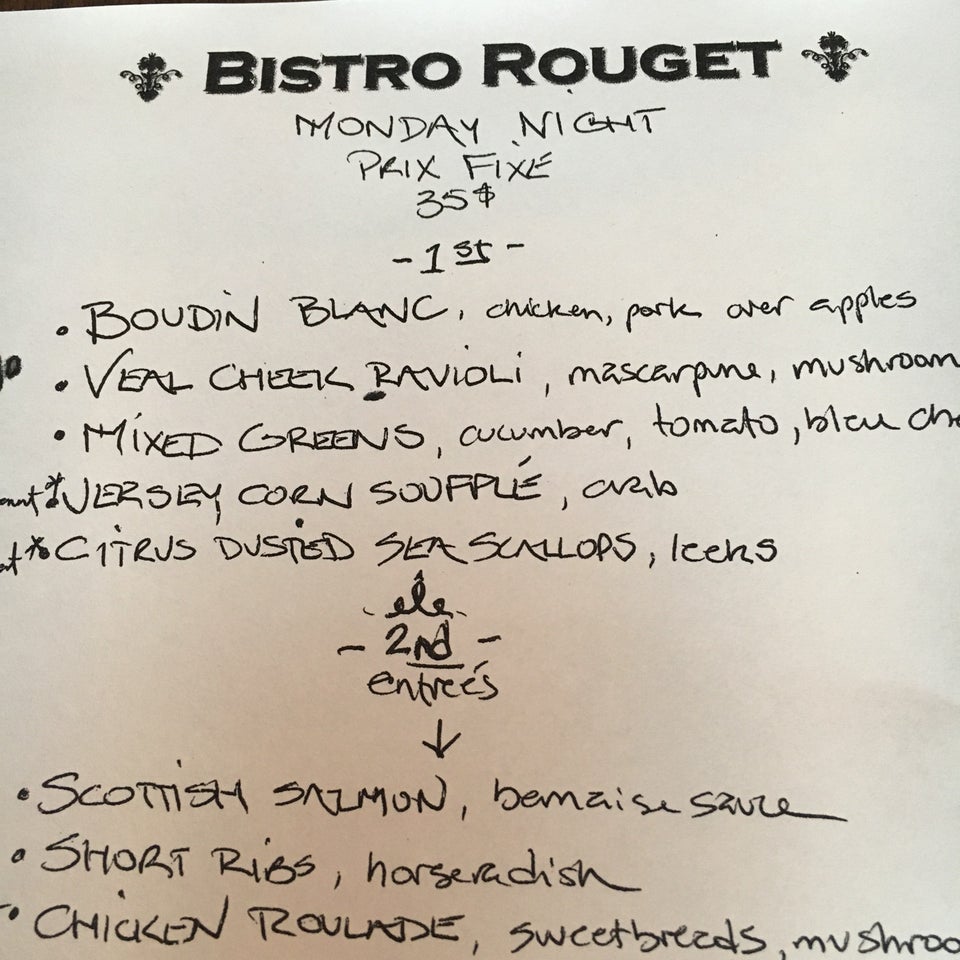 BISTRO ROUGET
MONDAY NIGHT
PRIX FIXÉ
35$
- 1st -
• BOUDIN BLANC, chicken, pork over apples
• VEAL CHEEK RAVIOLI, mascarpone, mushroom
• MIXED GREENS, cucumber, tomato, bleu che
* JERSEY CORN SOUFFLÉ, crab
* CITRUS DUSTED SEA SCALLOPS, leeks
- 2nd -
entreés
↓
• SCOTTISH SALMON, bernaise sauce
• SHORT RIBS, horseradish
• CHICKEN ROULADE, sweetbreads, mushroo